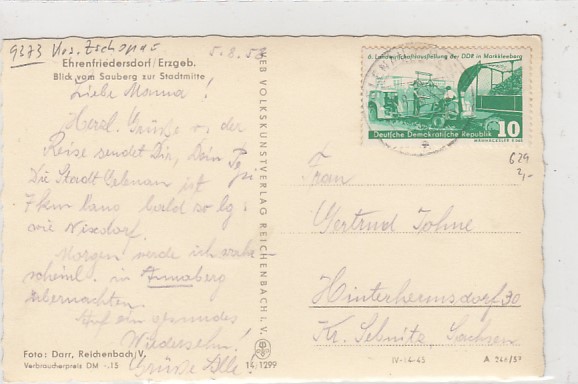 9373 Krs. Zschopau
5.8.58
Ehrenfriedersdorf/Erzgeb.
Blick vom Sauberg zur Stadtmitte
Liebe Mama!
Herzl. Grüße v. der
Reise sendet Dir, Dein
Die Stadt Gelenau ist
7 km lang bald so lg.
wie Nixdorf.
Morgen werde ich wahr
scheinl. in Annaberg
übernachten.
Auf ein gesundes
Wiedersehn!
Grüße Alle!
Foto: Darr, Reichenbach/V.
Verbraucherpreis DM -.15
14/1299
VEB VOLKSKUNSTVERLAG REICHENBACH I. V.
6. Landwirtschaftsausstellung der DDR in Markkleeberg
Deutsche Demokratische Republik
10
629
2,-
Frau
Gertrud Johne
Hinterhermsdorf 30
Kr. Sebnitz, Sachsen
IV-14-45
A 248/57